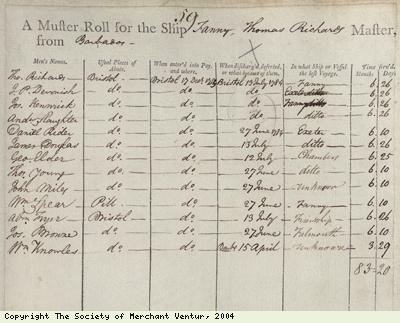 59
A Muster Roll for the Ship Fanny, Thomas Richards Master,
from Barbados
Men's Names. Usual Places of Abode. When enter'd into Pay, and where. When discharg'd, deserted, or what become of them. In what Ship or Vessel the last Voyage. Time serv'd. Months. Days.
Tho. Richards Bristol Bristol 17 Dec. Bristol 13 July 1784 Fanny 6 26
J. P. Devonish do do do 6 26
Jos. Kenwrick do do do 6 26
Andw Slaughter do do do 6 26
Daniel Rider do do 27 June 1784 Exeter 6 10
James Douglas do do 13 July ditto 6 26
Geo. Elder do do 12 July Chambers 6 25
Tho. Young do do 27 June ditto 6 10
John Miles do do 27 June unknown 6 10
Wm Spear Pill do 27 June Fanny 6 10
Abm Fryer Bristol do 13 July Friendship 6 26
Jos. Browne do do 27 June Falmouth 6 10
Wm Knowles do do 15 April unknown 3 29
83 20
Copyright The Society of Merchant Ventur, 2004